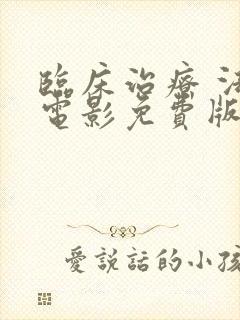 臨床治療
電影免費版
愛說話的小孩